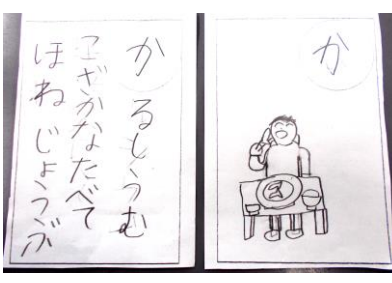 かるしうむ
こざかなたべて
ほねじょうぶ
か